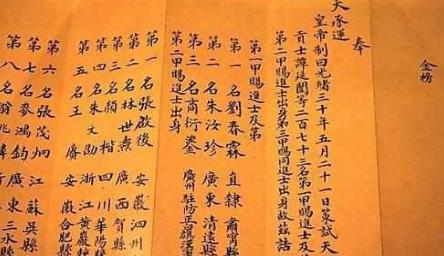 金榜
奉
天承運
皇帝制曰光緒三十年五月二十一日策試天
貢士譚延闓等二百七十三名第一甲賜進士及
第二甲賜進士出身第三甲賜同進士出身故茲誥
第一甲賜進士及第
第一名劉春霖 直隸 肅寧縣
第二名朱汝珍 廣東 清遠縣
第三名商衍鎏 廣州駐防正旗漢軍
第二甲賜進士出身
第一名張啟後 安徽 泗州
第二名林世燾 廣西 賀縣
第三名顏楷 四川 華陽縣
第四名朱文劭 浙江 黃巖縣
第五名王賡 安徽 合肥縣
第六名張茂炯 江蘇 吳縣
第七名麥鴻鈞 廣東 三水縣
第八名翁兆